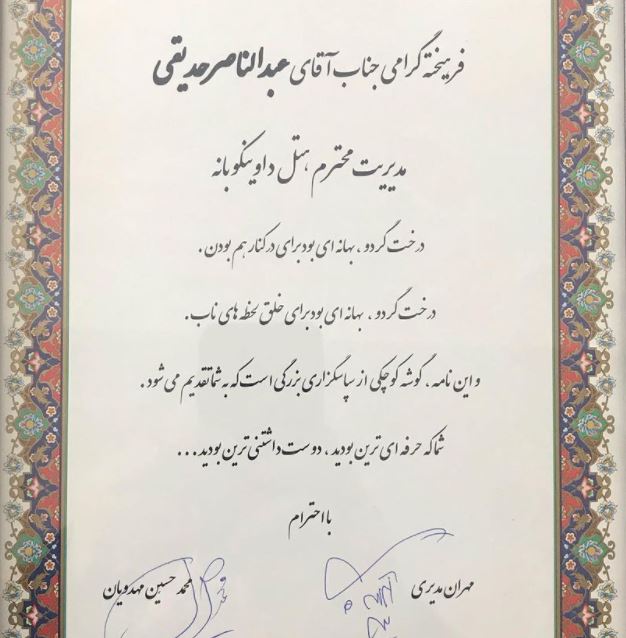 فرهیخته گرامی جناب آقای عبدالناصر حدیقی
مدیریت محترم هتل داوینکو بانه
درخت گردو، بهانه ای بود برای در کنار هم بودن.
درخت گردو، بهانه ای بود برای خلق لحظه های ناب.
و این نامه، گوشه کوچکی از سپاسگزاری بزرگی است که به شما تقدیم می شود.
شما که حرفه ای ترین بودید، دوست داشتنی ترین بودید...
با احترام
مهران مدیری
محمد حسین مهدویان